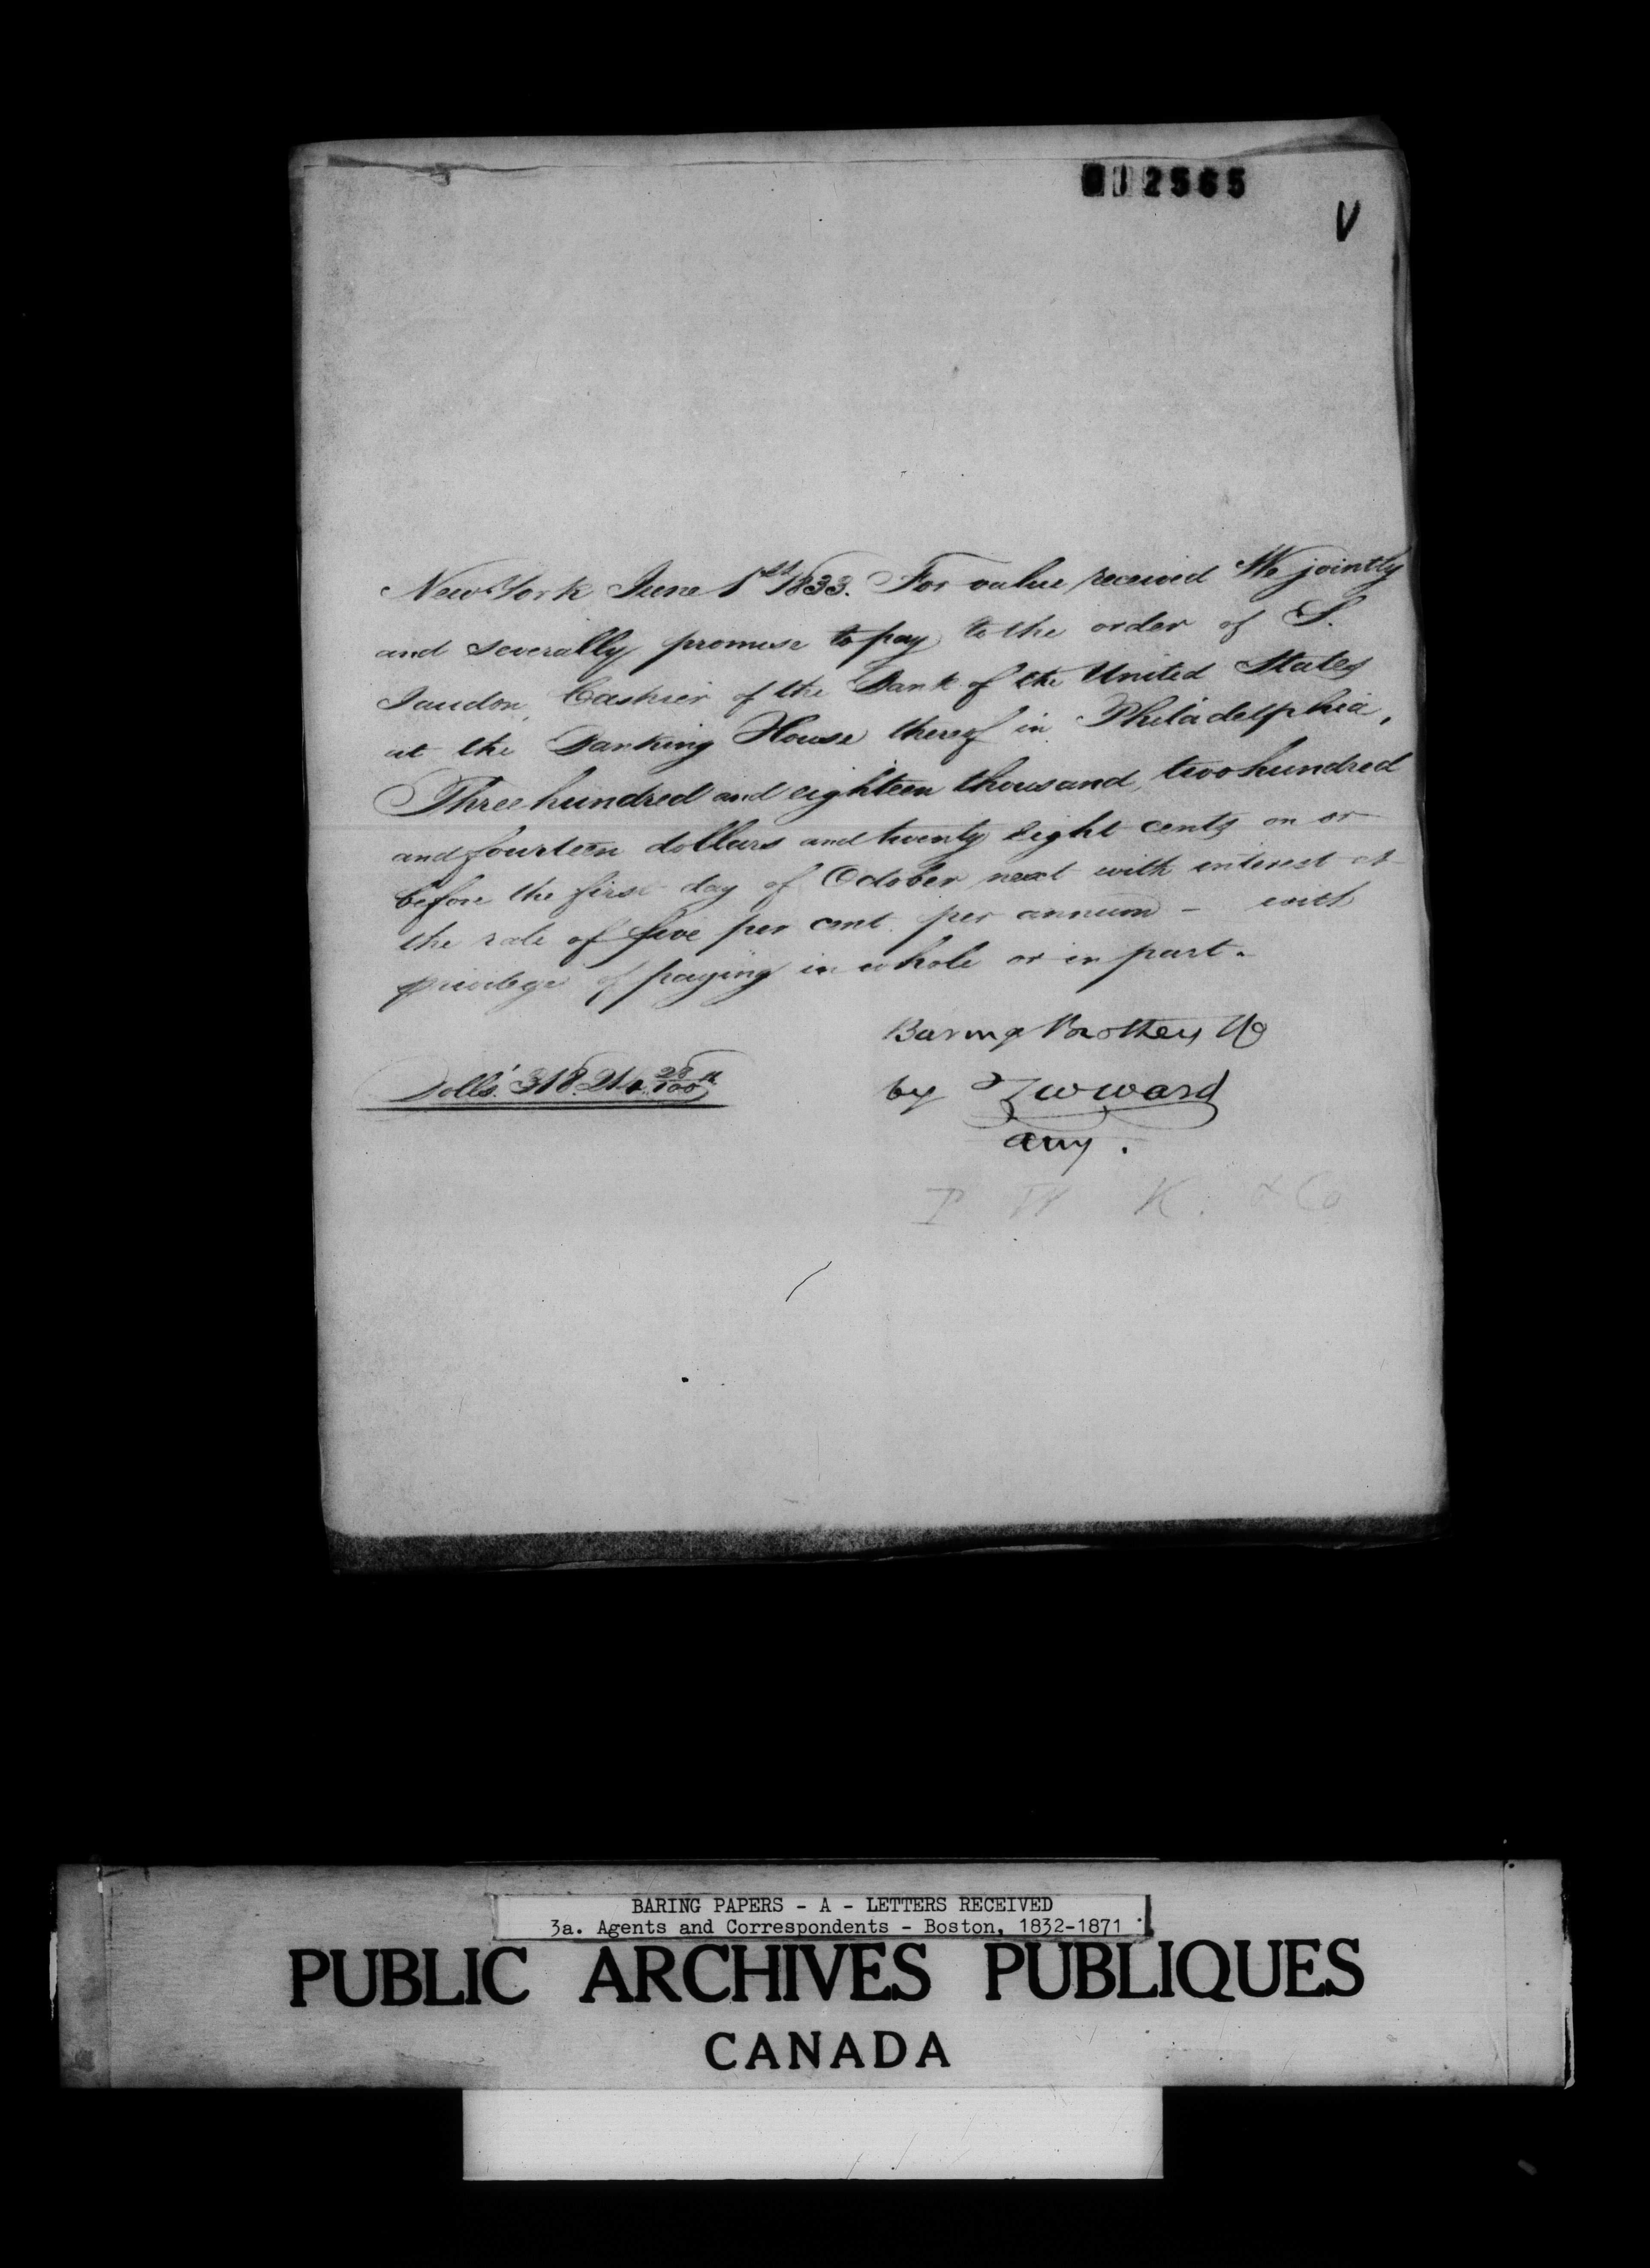 2565
V
New York June 1st 1833. For value received We jointly
and severally promise to pay to the order of S.
Jaudon, Cashier of the Bank of the United States
at the Banking House thereof in Philadelphia,
Three hundred and eighteen thousand, two hundred
and fourteen dollars and twenty eight cents on or
before the first day of October next with interest at
the rate of five per cent. per annum - with
privilege of paying in whole or in part.
Baring Brothers & Co
Dolls. 318.214 28/100
by T W Ward
atty.
P W K. & Co
BARING PAPERS - A - LETTERS RECEIVED
3a. Agents and Correspondents - Boston, 1832-1871
PUBLIC ARCHIVES PUBLIQUES
CANADA